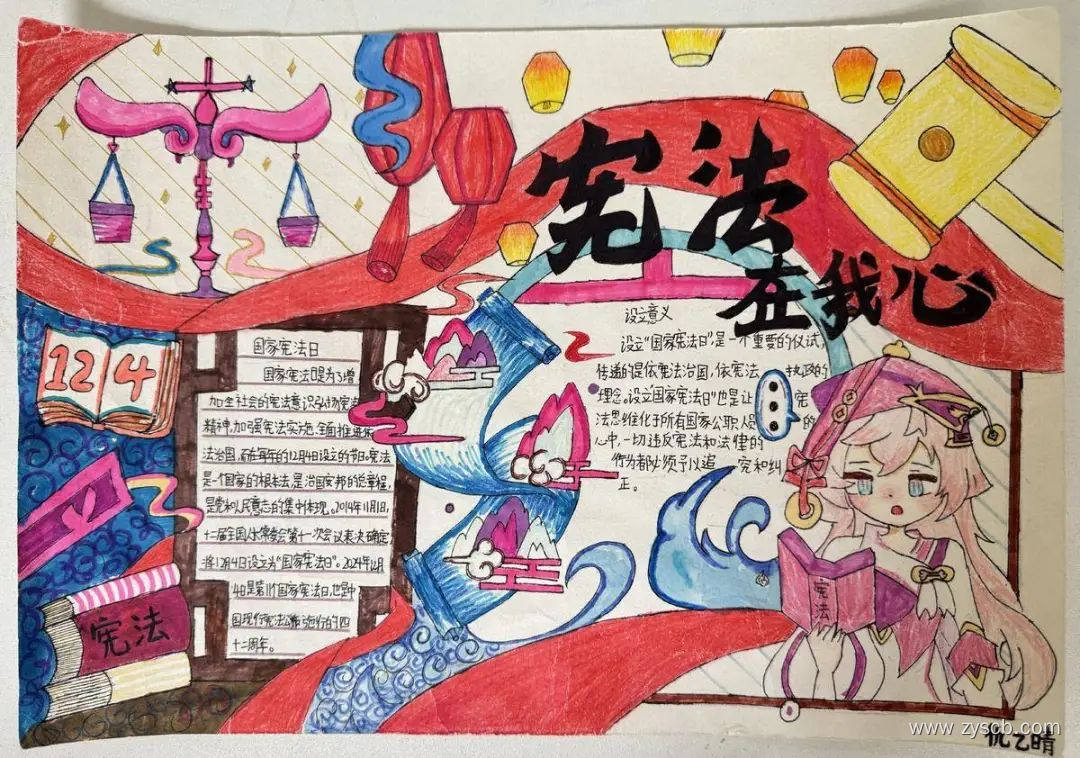 宪法
在我心
12 4
国家宪法日
国家宪法日是为了增
加全社会的宪法意识弘扬宪法
精神,加强宪法实施,全面推进依
法治国,而在每年的12月4日设立的节日。宪法
是一个国家的根本法,是治国安邦的总章程,
是党和人民意志的集中体现。2014年11月1日,
十一届全国人大常委会第十一次会议表决确定
将12月4日设立为“国家宪法日”。2024年12月
4日是第11个国家宪法日,也是中
国现行宪法公布施行的四
十二周年。
设立意义
设立“国家宪法日”,是一个重要的仪式,
传递的是依宪法治国,依宪法 执政的
理念。设立“国家宪法日”也是让 宪
法思维化于所有国家公职人员 的
心中,一切违反宪法和法律的
行为都必须予以追 究和纠
正。
宪法
宪法
www.zyscb.com
乙晴